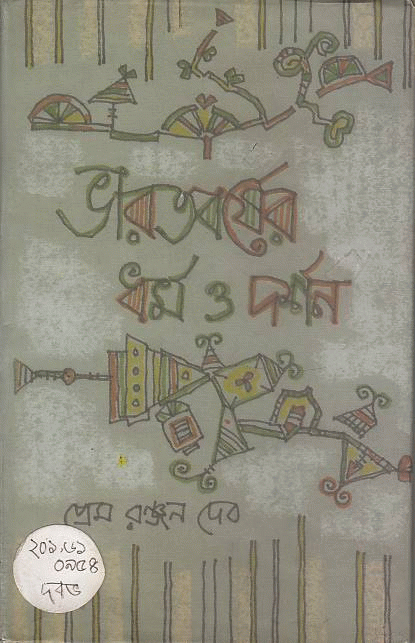 ভারতবর্ষের
ধর্ম ও দর্শন
প্রেম রঞ্জন দেব
২০১.৬১
০৯৫৪
দবভ